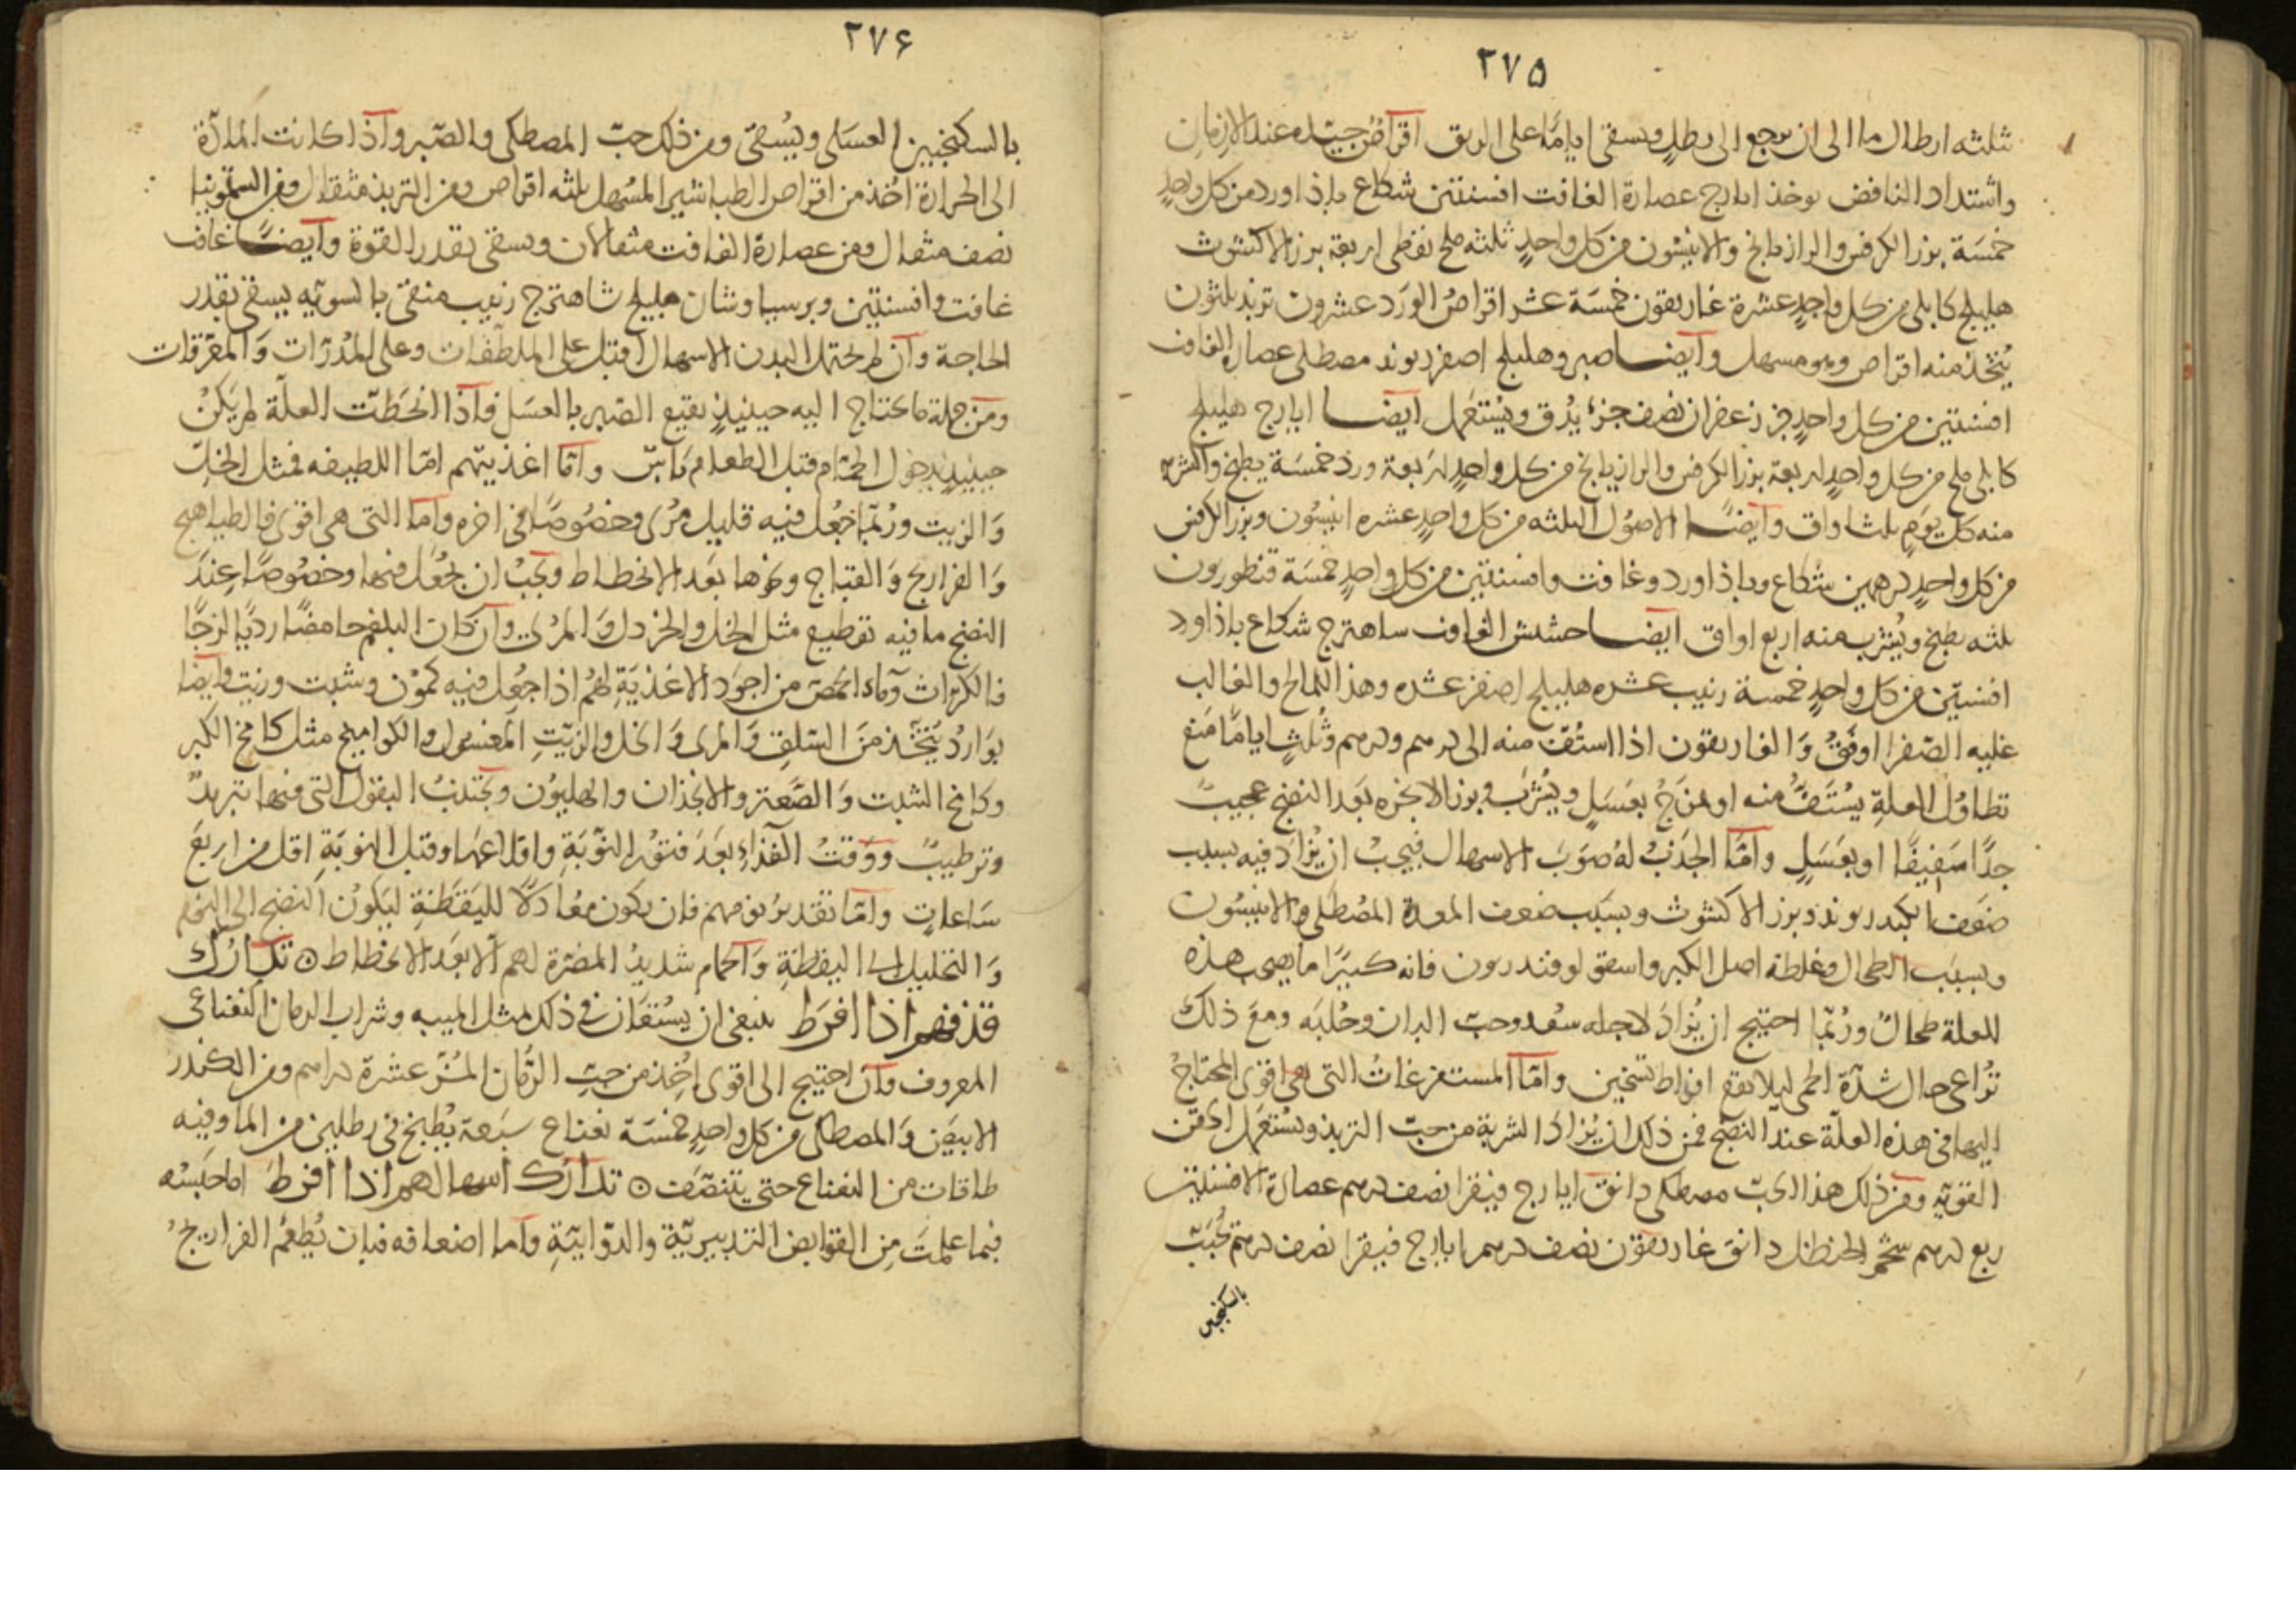 ٢٧٥
ثلثه ارطال ما الى ان يرجع الى رطلٍ ويسقى اياما على الريق اقراص جيدة عند الازمان
واشتداد النافض يوخذ ايارج عصارة الغافت افسنتين شكاع باذاورد من كل واحدٍ
خمسَة بزر الكرفس والرازيانج والانيسُون من كل واحدٍ ثلثه ملح نفطى اربعة بزر الاكشوث
هليلج كابلى من كل واحدٍ عشرة غاريقون خمسَة عشر اقراصُ الوَرد عشرون تربد ثلثون
يُتّخذ منه اقراص وهو مسهل وايضا صبر وهليلج اصفر ريوند مصطكى عصارة الغافت
افسنتين من كل واحدٍ جز زعفران نصف جزء يُدق ويُستعمل ايضا ايارج هليلج
كابلى ملح من كل واحدٍ اربعة بزر الكرفس والرازيانج من كل واحدٍ اربعة ورد خمسَة يطبخ والشربة
منه كل يوم ثلث اواق وايضًا الاصُول الثلثه من كل واحدٍ عشره انيسُون وبزر الكرفس
من كل واحدٍ درهمين شكاع وباذاورد وغافت وافسنتين من كل واحدٍ خمسَة قنطوريون
ثلثه يطبخ ويُشرب منه اربع اواق ايضا حشيش الغافت ساهترج شكاع باذاورد
افسنتين من كل واحدٍ خمسة زبيب عشره هليلج اصفر عشره وهذا للمالح والغالب
عليه الصّفرا اوفَقُ وَالغاريقون اذا استُفّ منه الى درهم ودرهم وثُلثٍ اياما مَنع
تطاوُل العلةِ يُستَفُّ منه او يمزَجُ بعسَلٍ ويُشرَبُ وبزر الانجره بَعد النضج عجيبٌ
جدًا سَفيفًا او بعَسَلٍ وامّا الجَذبُ لهُ صَوبَ الاسهال فيَجبُ ان يُزادَ فيه بسبب
ضعَف الكبد ريوند وبزر الاكشوث وبسَبب ضعف المعدة المصطكى والانيسُون
وبسبَب الطحال وغلظه اصل الكبر واسقولوفندريون فانه كثيرًا ما يصحب هذه
للعلة طحالٌ ورُبّما احتيج ان يُزادَ لاجله سعُد وحبّ البان وحُلبَه ومعَ ذلك
تُراعى حال شدّة الحمى ليلا يقع افراط تسخين وامّا المستفرغاتُ التى هى اقوى المحتاجُ
اليها فى هذه العلّة عند النضج فمن ذلك ان يُزادَ الشربة من حبّ التربد ويُستعمل
القويّه ومن ذلك هذا الحَبّ مصطكى دانق ايارج فيقرا نصف درهم عصارة الافسنتين
ربع درهم شحَم الحنظل دانق غاريقون نصف درهم ايارج فيقرا نصف درهم يُحبّبُ
بالسكنجبين
٢٧۶
بالسكنجبين العسَلى ويُسقى ومن ذلك حبّ المصطكى والصّبر واذا كانت المادّة
الى الحرارة اُخذ من اقراص الطباشير المسُهل ثلثه اقراص ومن التربد مثقال ومن السقمونيا
نصف مثقال ومن عصارة الغافت مثقالان ويسقى بقدر القوة وايضًا غاف
غافت وافسنتين وبرسياوشان هليلج شاهترج زبيب منقى بالسويّه يسقى بقدر
الحاجة وان لم يحتمل البدن الاسهال اقبل على الملطّفات وعلى المُدرّات وَالمعرّقات
ومن جملة ما يحتاج اليه حينيذٍ نقيع الصّبر بالعسَل فاذا انحَطّت العلّة لم يَكنْ
حينيذٍ بدخول الحمّام قبل الطعام بَاسٌ وامّا اغذيتهم امّا اللطيفه فمثل الخلّ
وَالزيت ورُبّما جُعل فيه قليل مُرّى وخصُوصًا فى اخره وامّا التى هى اقوى فالطياهيج
وَالفراريج وَالقبّاج ونحوها بَعد الانحطاط ويجَبُ ان يجُعَل فيها وخصُوصًا عِندَ
النضج ما فيه تقطيع مثل الخل والخردل وَالمُرّى وان كان البلغم حامضًا رديًا لزجًا
فالكرّاث وَماء الحمّص من اجوَد الاغذيَةِ لهُم اذا جُعِل فيه كمّوْن وشبت وزيت وايضا
بَوارد يُتّخذ منَ السّلق وَالمرى وَالخل والزّيتِ المغسول والكواميخ مثل كامخ الكبر
وكامخ الشبت وَالصّعتر والانجذان والهليُون ويجُتَنبُ البقول التى فيها تبريدٌ
وترطيبٌ ووَقتُ الغذاءِ بعَدَ فتوُر النّوبَةِ واقلاعها وقبل النوبَةِ اقل من اربَعَ
سَاعاتٍ وامّا تقدير نومهم فان يكون معُادلًا لليَقظَةِ ليَكونُ النضج الى النّوم
وَالتحليل الى اليقظةِ وَالحمام شديدُ المضرّة لهم الّا بعَد الانحطاط ٥ تدارُك
قذفهم اذا افرَط ينبغى ان يسُتعَان فى ذلك بمثل الميبه وشراب الرمان النعناعى
المعروف وان احتيج الى اقوى اُخِذ من حبّ الرُّمّان المُزّ عشرة دراهم ومن الكندر
الابيَض وَالمصطكى من كل واحدٍ خمسَة نعناع سَبعة يُطبخ فى رطلين من الما وفيه
طاقات من النعناع حتى يتنصّف ٥ تدارُك اسهالهم اذا افرطَ اما حَبسُه
فبما علمتَ مِن القوابض التدبيريّة والدّوايّةِ وامّا اضعافه فبان يُطعَم الفراريجُ